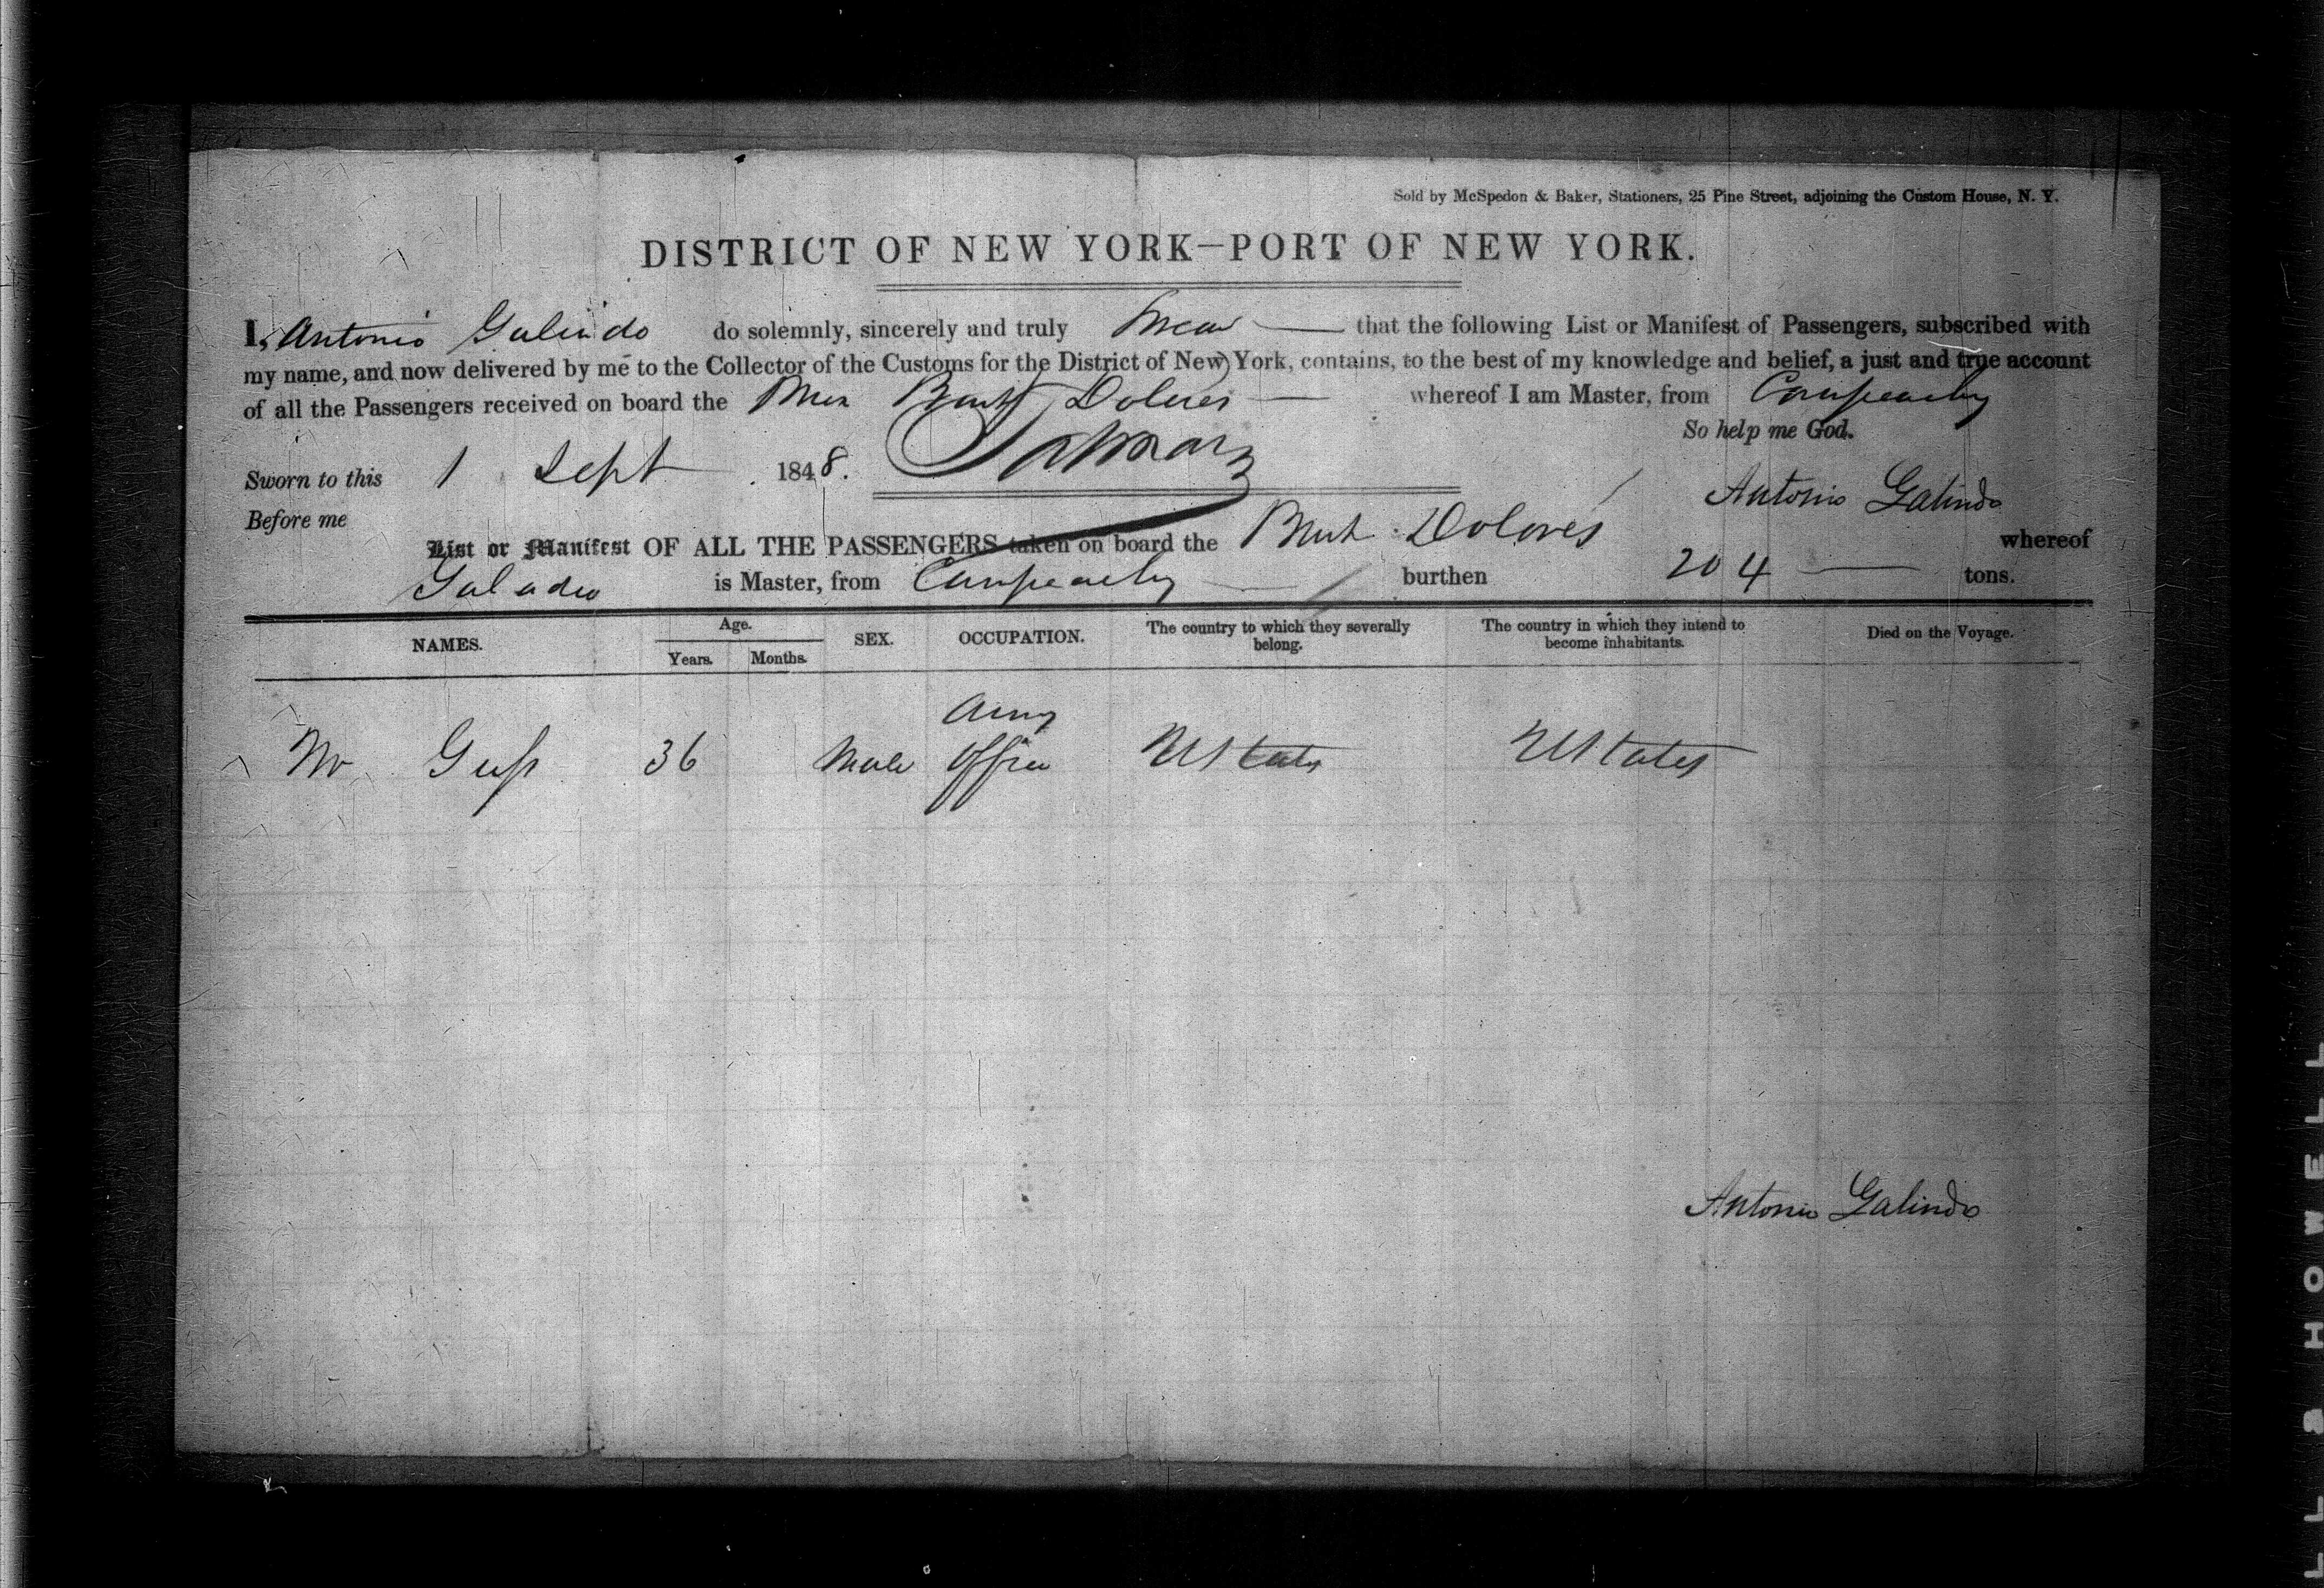 Sold by McSpedon & Baker, Stationers, 25 Pine Street, adjoining the Custom House, N. Y.
DISTRICT OF NEW YORK—PORT OF NEW YORK.
I, Antonio Galindo do solemnly, sincerely and truly Swear — that the following List or Manifest of Passengers, subscribed with
my name, and now delivered by me to the Collector of the Customs for the District of New York, contains, to the best of my knowledge and belief, a just and true account
of all the Passengers received on board the Mex Dolores — whereof I am Master, from Campeachy
So help me God.
Sworn to this 1 Sept 1848.
Antonio Galindo
Before me
List or Manifest OF ALL THE PASSENGERS taken on board the Dolores whereof
is Master, from Campeachy — burthen 204 — tons.
NAMES. Age. SEX. OCCUPATION. The country to which they severally belong. The country in which they intend to become inhabitants. Died on the Voyage.
Years. Months.
Army
Mr 36 Male UStates UStates
Antonio Galindo
HOWELL